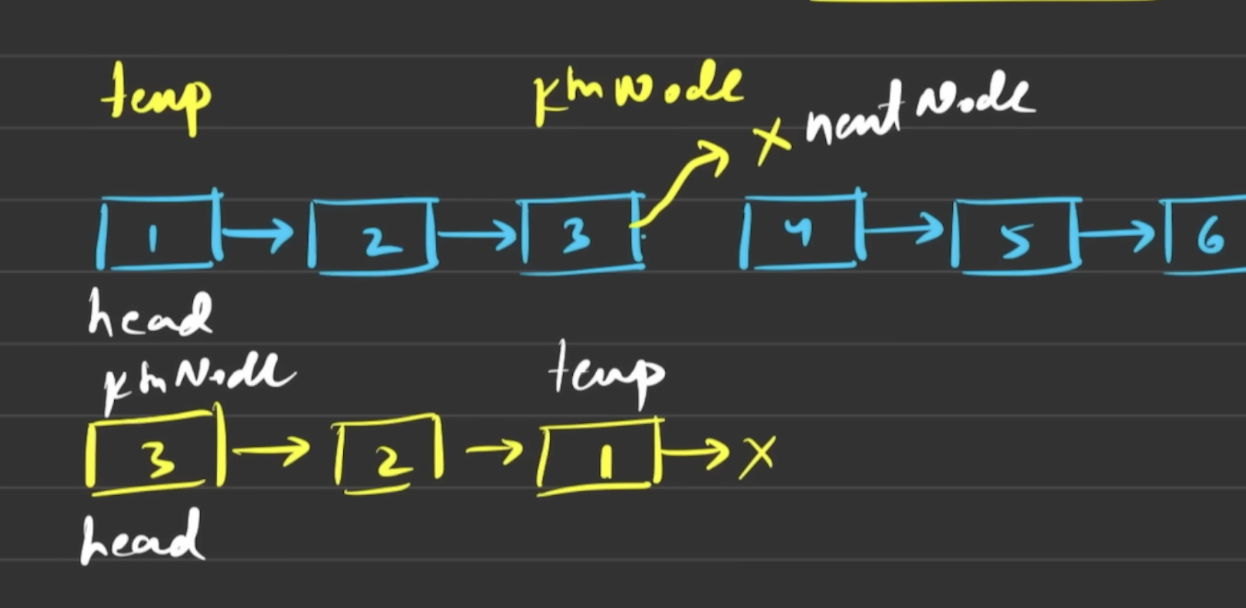 temp KthNode
x nextNode
1 → 2 → 3 4 → 5 → 6
head
KthNode temp
3 → 2 → 1 → x
head